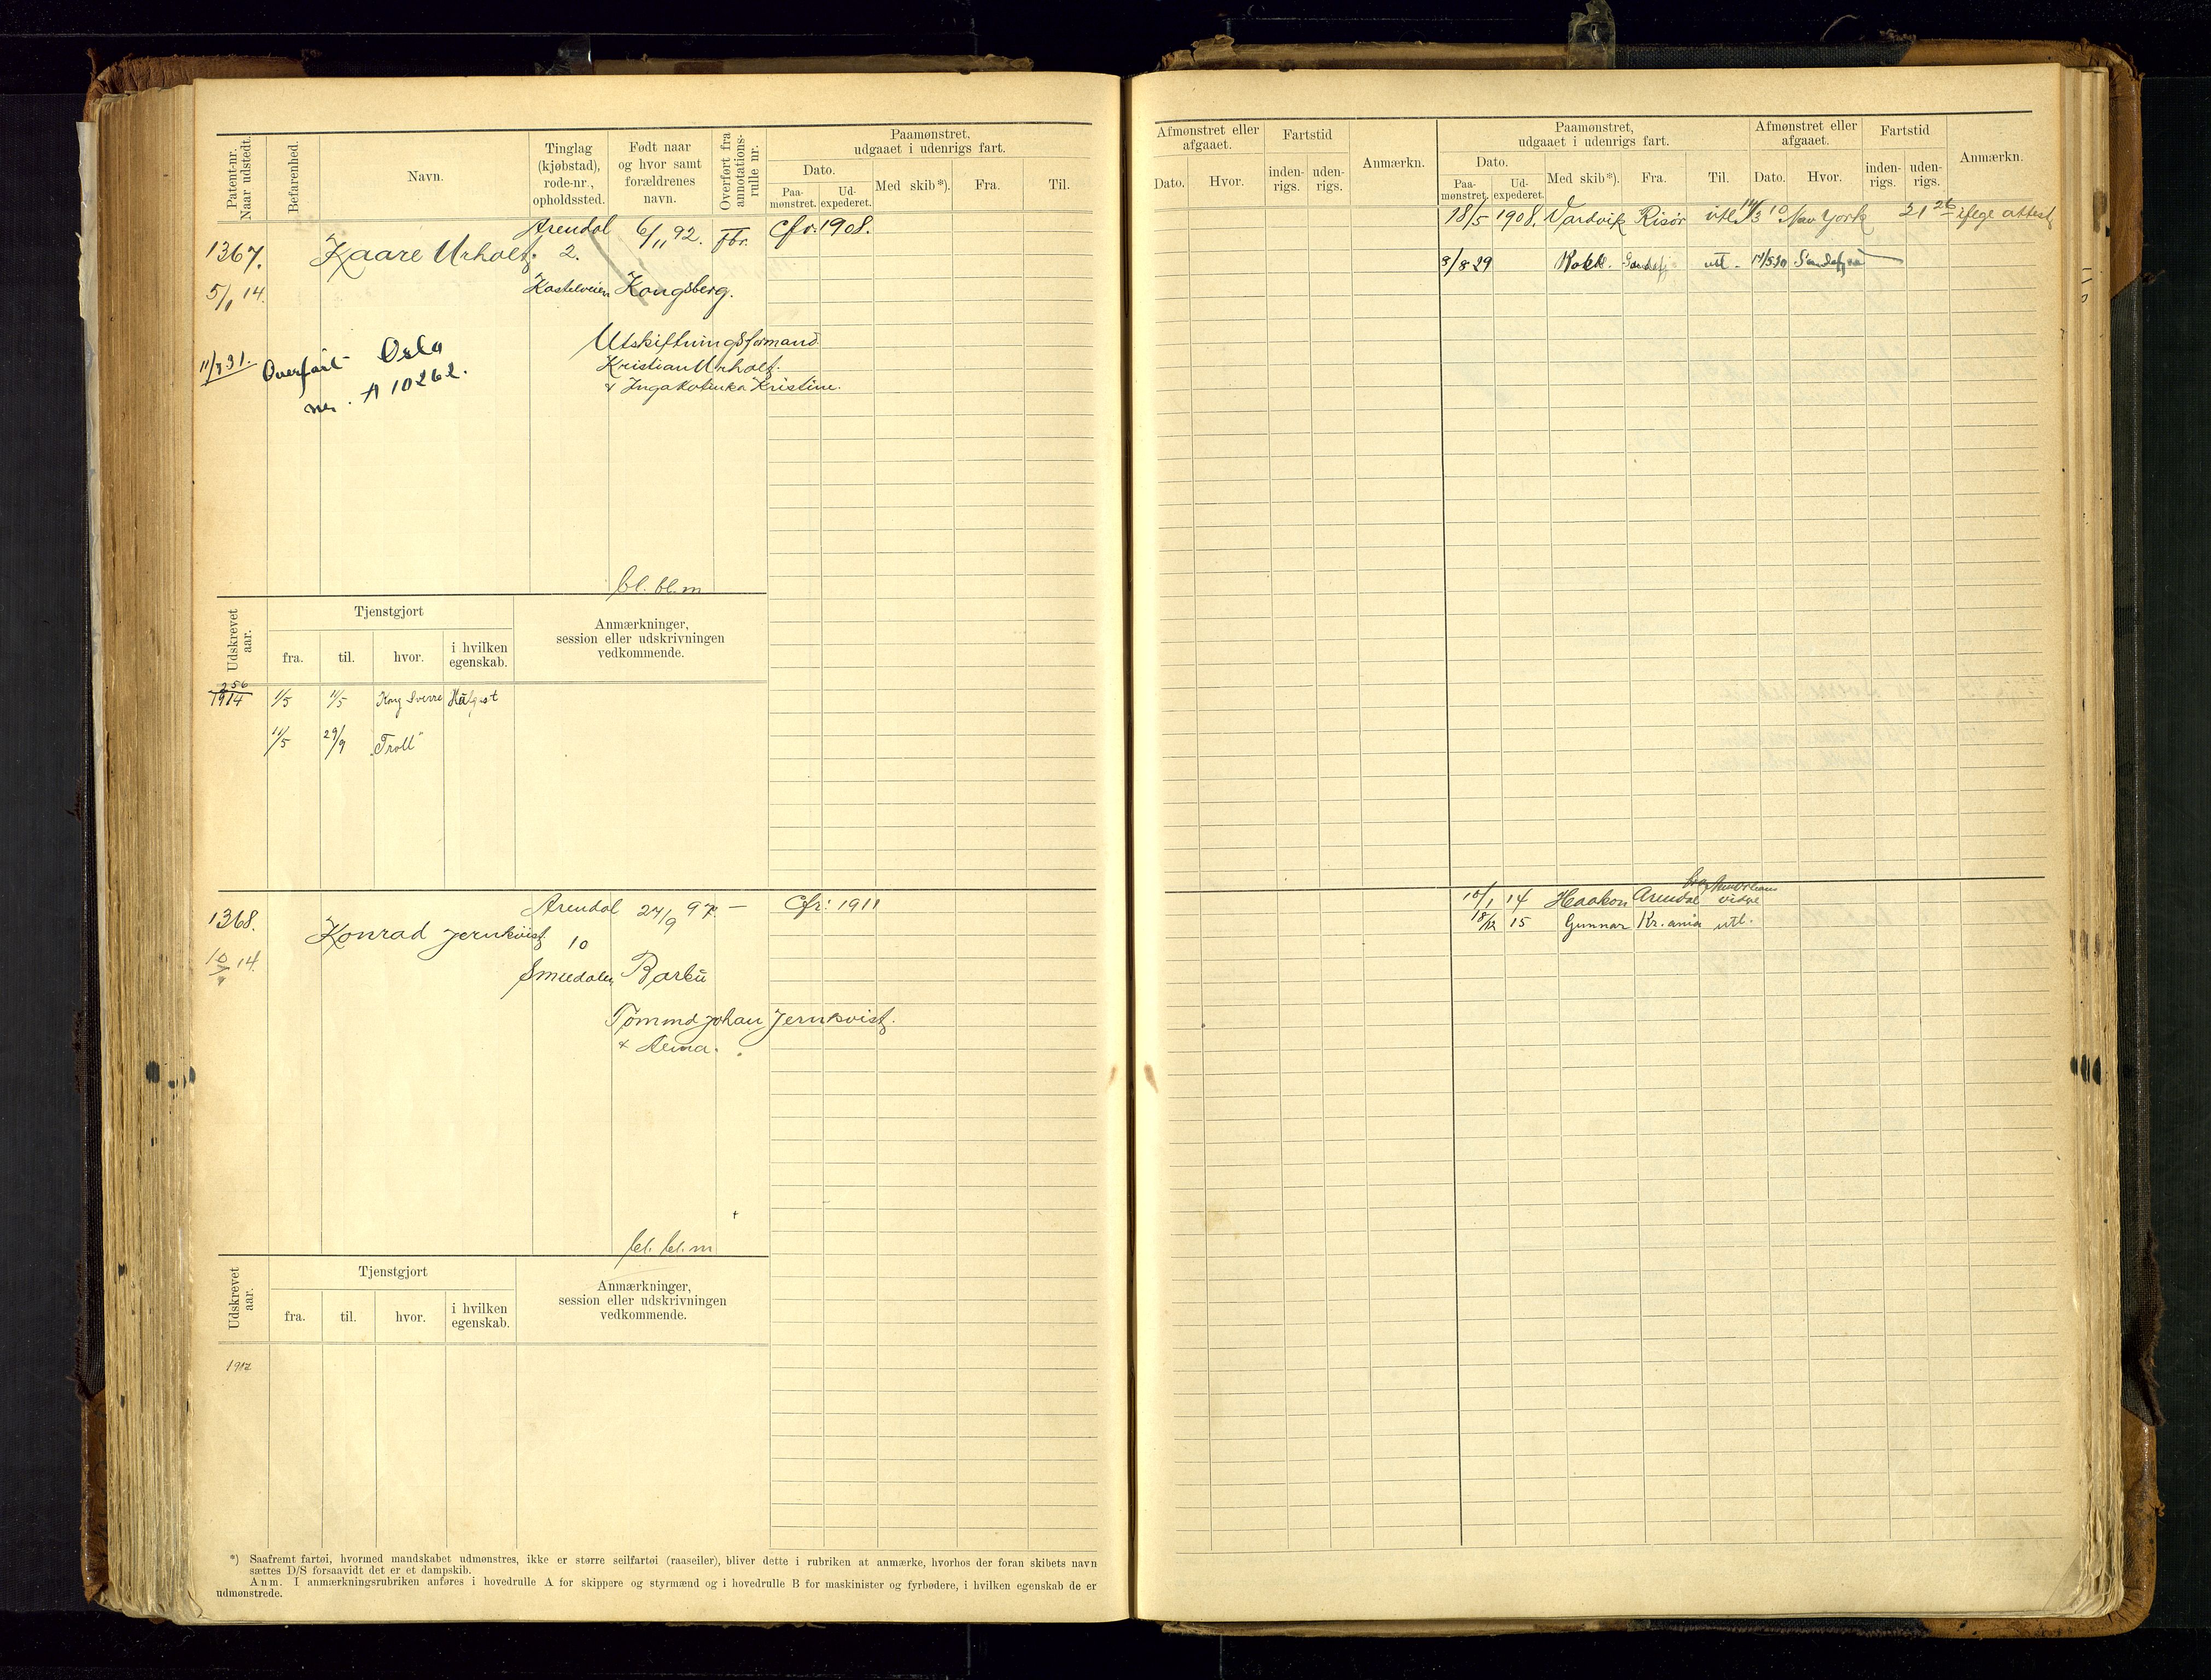 Patent-nr. Naar udstedt.
Befarenhed.
Navn.
Tinglag (kjøbstad), rode-nr., opholdssted.
Født naar og hvor samt forældrenes navn.
Overført fra annotations-rulle nr.
Paamønstret. udgaaet i udenrigs fart.
Dato.
Paa-mønstret.
Ud-expederet.
Med skib*).
Fra.
Til.
1367.
Kaare Urholt.
Arendal
2.
6/11 92.
Fbr.
Cfr. 1908.
5/1 14.
Kastelveien
Kongsberg.
Utskiftningsformand
Kristian Urholt.
& Inga Kristine.
11/3 31.
Overført Oslo
nr. A 10262.
bl. bl. m
Udskrevet aar.
Tjenstgjort
fra.
til.
hvor.
i hvilken egenskab.
Anmærkninger, session eller udskrivningen vedkommende.
256
1914
1/5
11/5
Kong Sverre
11/5
29/9
"Troll"
1368.
Konrad Jernkvist
Arendal
10
24/9 97. —
Cfr: 1911
10/9 14.
Smeedalen
Barbu
Tømmd Johan Jernkvist.
& Alma.
bl. bl. m
Udskrevet aar.
Tjenstgjort
fra.
til.
hvor.
i hvilken egenskab.
Anmærkninger, session eller udskrivningen vedkommende.
1917
*) Saafremt fartøi, hvormed mandskabet udmønstres, ikke er større seilfartøi (raaseiler), bliver dette i rubriken at anmærke, hvorhos der foran skibets navn
sættes D/S forsaavidt det er et dampskib.
Anm. I anmærkningsrubriken anføres i hovedrulle A for skippere og styrmænd og i hovedrulle B for maskinister og fyrbødere, i hvilken egenskab de er
udmønstrede.
Afmønstret eller afgaaet.
Dato.
Hvor.
Fartstid
inden-rigs.
uden-rigs.
Anmærkn.
Paamønstret, udgaaet i udenrigs fart.
Dato.
Paa-mønstret.
Ud-expederet.
Med skib*).
Fra.
Til.
Afmønstret eller afgaaet.
Dato.
Hvor.
Fartstid
inden-rigs.
uden-rigs.
Anmærkn.
18/5 1908. Vardvik Risør utl. 14/3 10 New York 21 26 ifølge attest
8/8 29 utl.
10/1 14 Haakon Arendal
18/12 15 Gunnar Kr.ania utl.